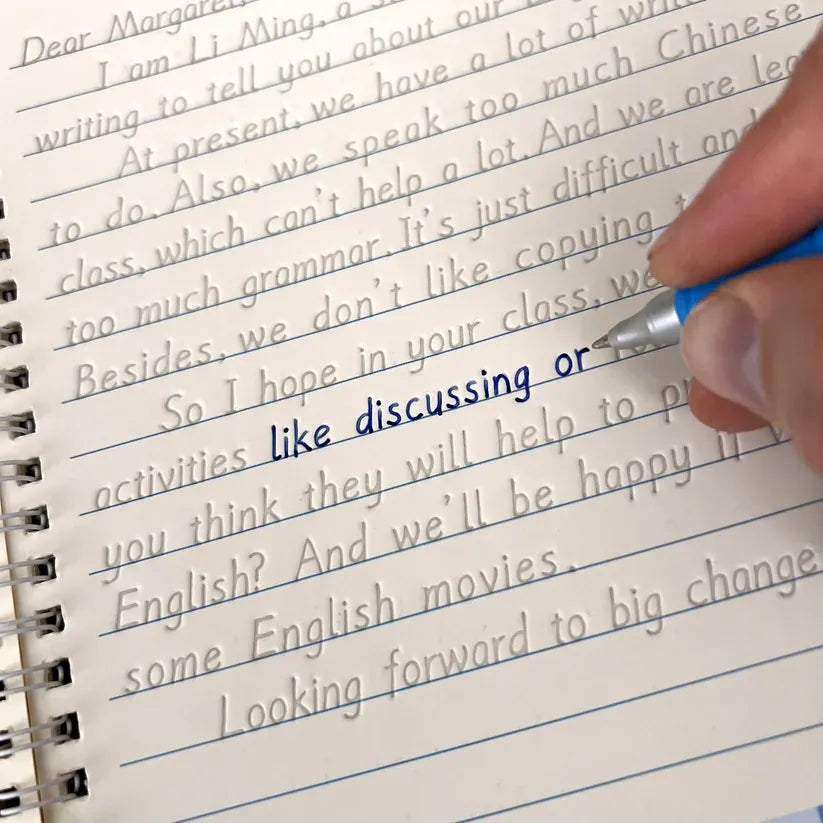 Dear Margaret,
I am Li Ming, a
writing to tell you about our
At present, we have a lot of
to do. Also, we speak too much Chinese
class, which can't help a lot. And we are
too much grammar. It's just difficult and
Besides, we don't like copying
So I hope in your class, we
activities like discussing or
you think they will help to
English? And we'll be happy if
some English movies.
Looking forward to big change